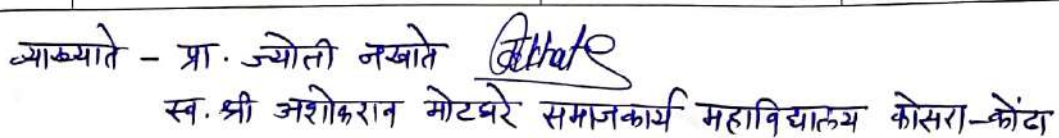 व्याख्याते - प्रा. ज्योती नखाते
स्व. श्री अशोकराव मोटघरे समाजकार्य महाविद्यालय कोसरा-कोंढा